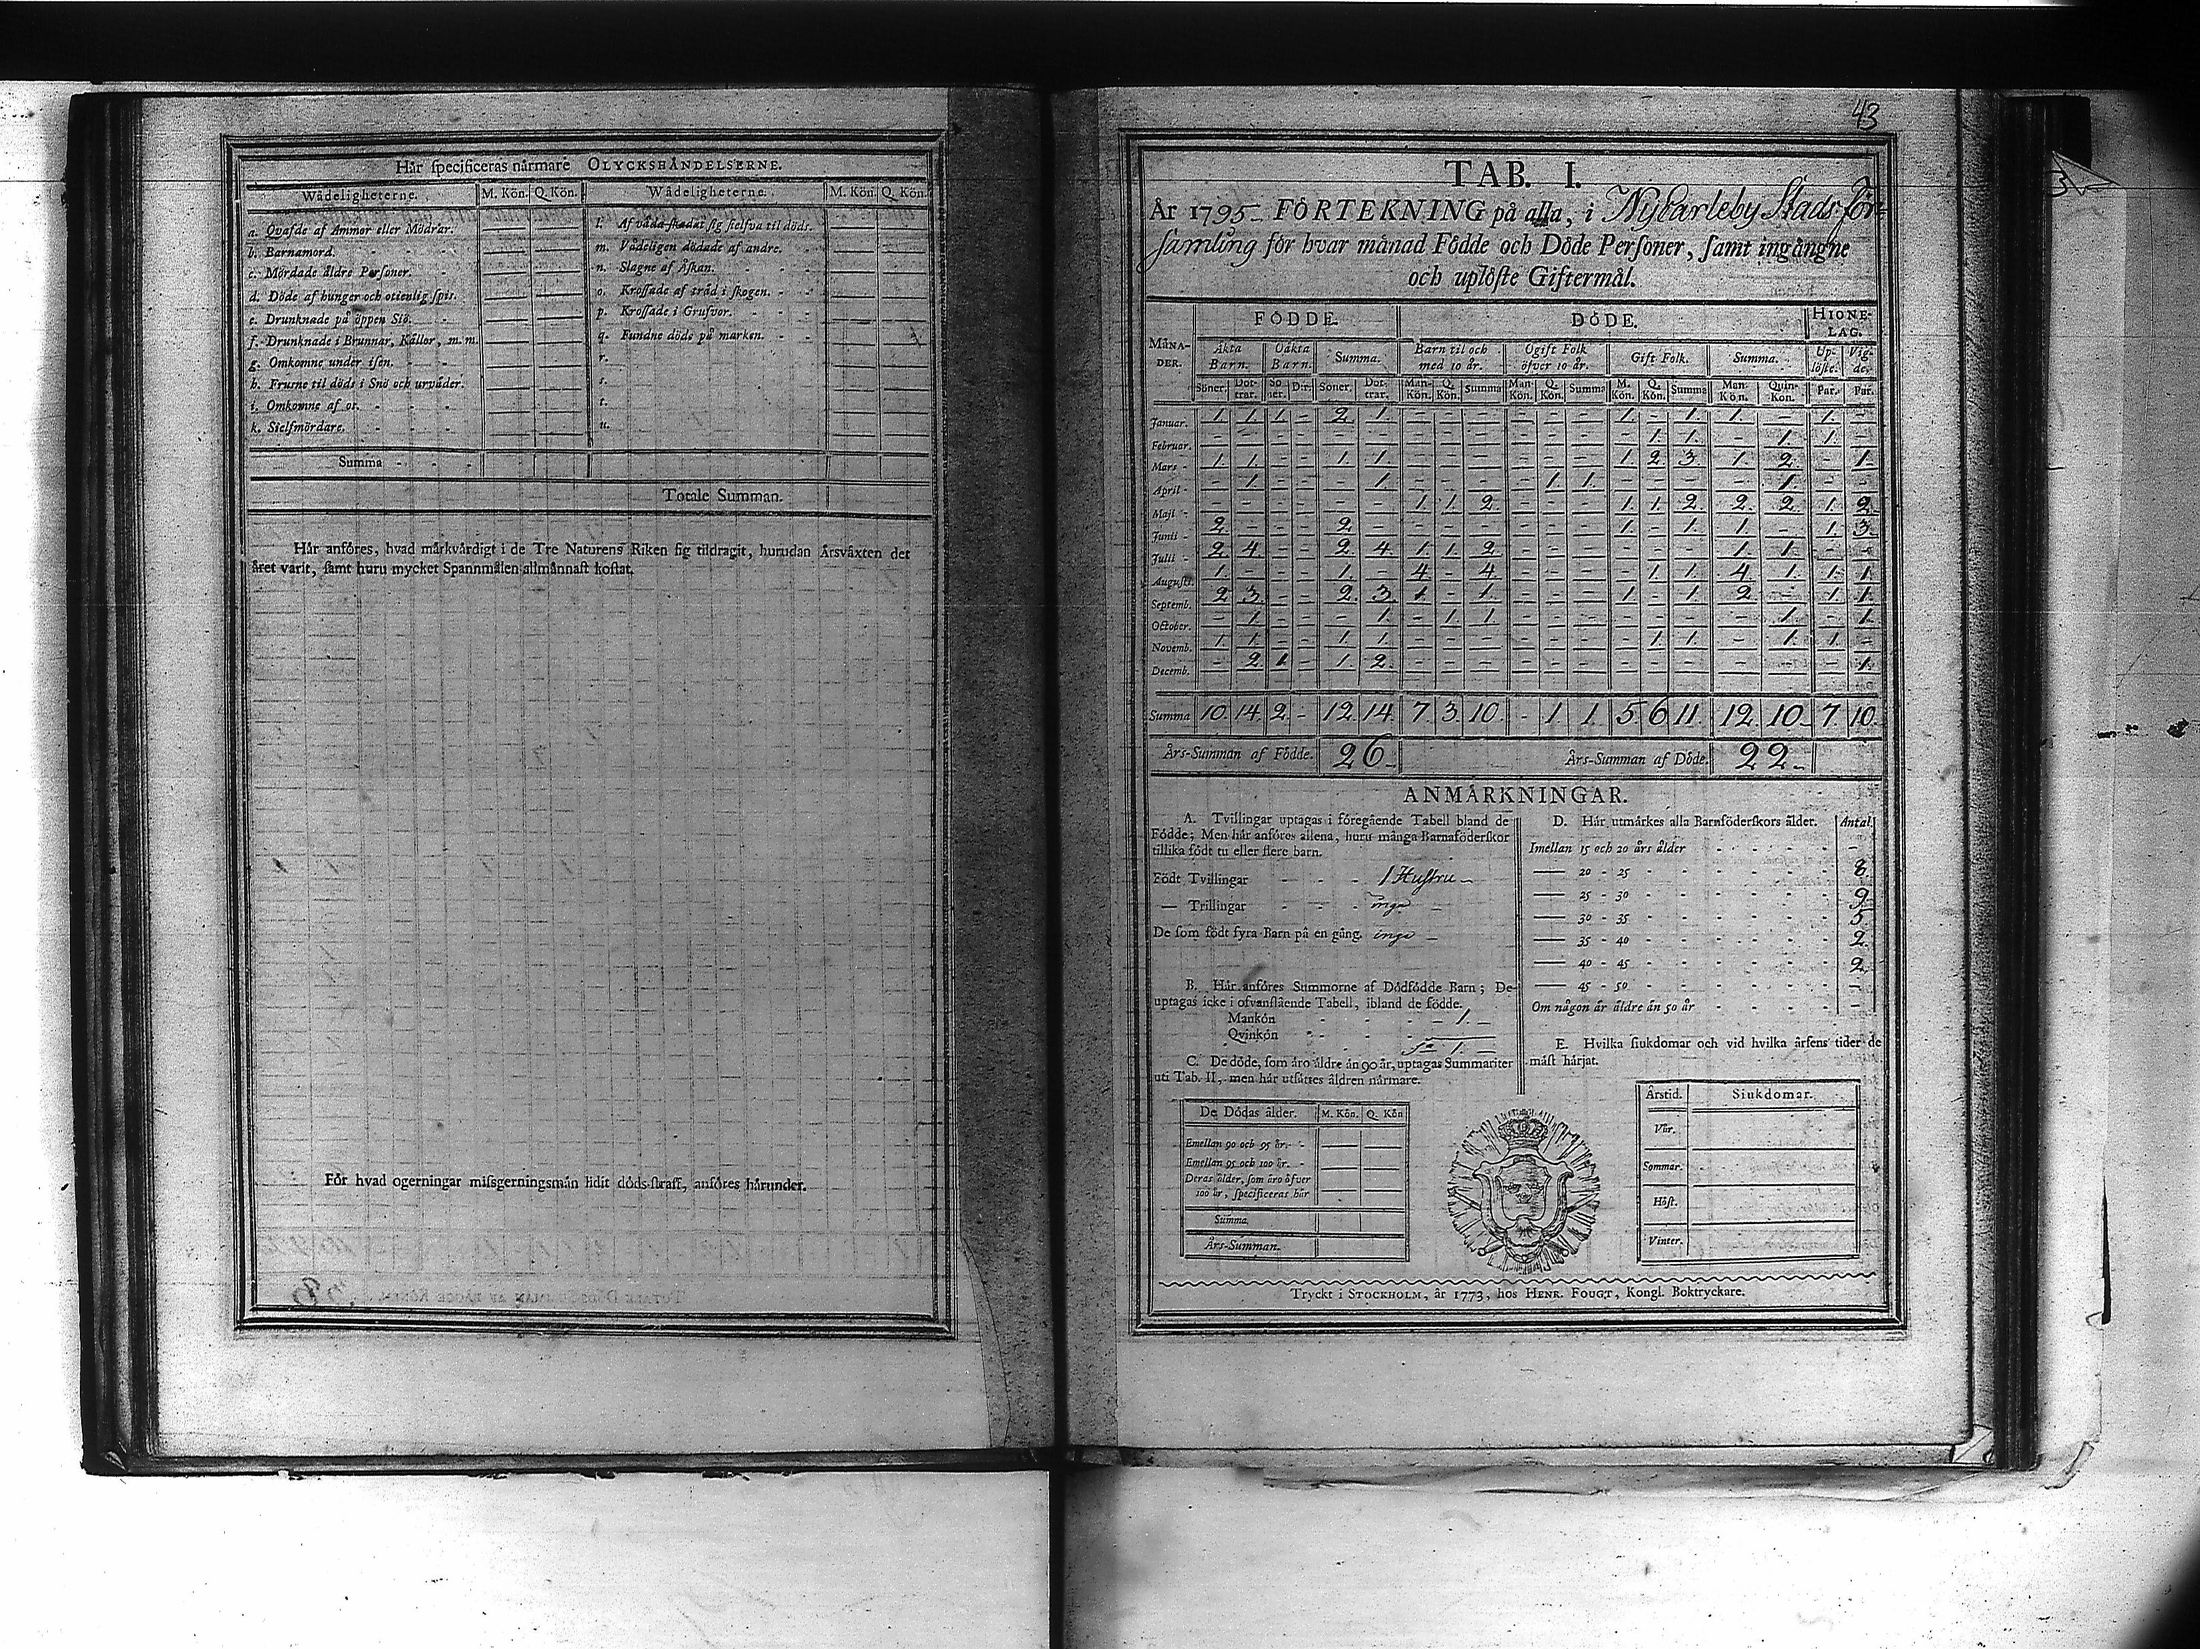 Här specificeras närmare OLYCKSHÄNDELSERNE.
Wådeligheterne. M. Kön. Q. Kön. Wådeligheterne. M. Kön. Q. Kön.
a. Qvafde af Ammor eller Mödrar. — — l. Af våda skadat sig sielfva til döds. — —
b. Barnamord. — — m. Vådeligen dödade af andre. — —
c. Mördade äldre Personer. — — n. Slagne af Åskan. — —
d. Döde af hunger och otienlig spis. — — o. Krossade af träd i skogen. — —
e. Drunknade på öppen Siö. — — p. Krossade i Grufvor. — —
f. Drunknade i Brunnar, Källor, m. m. — — q. Fundne döde på marken. — —
g. Omkomne under isen. — — r. — —
h. Frusne til döds i Snö och urväder. — — s. — —
i. Omkomne af os. — — t. — —
k. Sielfmördare. — — u. — —
Summa
Totale Summan.
Här anföres, hvad märkvärdigt i de Tre Naturens Riken sig tildragit, hurudan Årsväxten det
året varit, samt huru mycket Spannmålen allmännast kostat.
För hvad ogerningar missgerningsmän lidit döds-straff, anföres härunder.
43
TAB. I.
År 1795 FÖRTEKNING på alla, i Nycarleby Stads För=
samling för hvar månad Födde och Döde Personer, samt ingångne
och uplöste Giftermål.
MÅNA-DER. FÖDDE. DÖDE. HIONE-LAG.
Äkta Barn. Oäkta Barn. Summa. Barn til och med 10 år. Ogift Folk öfver 10 år. Gift Folk. Summa. Up-löste. Vig-de.
Söner. Dot-trar. Sö-ner. D:r Söner. Dot-trar. Man-Kön. Q. Kön. Summa Man-Kön. Q. Kön. Summa M. Kön. Q. Kön. Summa Man-Kön. Quin-Kön. Par. Par.
Januar. 1. 1. 1 - 2. 1. - - - - - - 1. - 1. 1. - 1. -
Februar. - - - - - - - - - - - - - 1. 1. - 1. 1. -
Mars - 1. 1. - - 1. 1. - - - - - - 1. 2. 3. 1. 2. - 1.
April - - 1. - - - 1. - - - - 1 1. - - - - 1. - -
Maji - - - - - - - 1. 1. 2. - - - 1. 1. 2 2. 2. 1. 2.
Junii - 2. - - - 2. - - - - - - - 1. - 1. 1. - 1. 3.
Julii - 2 4 - - 2. 4 1. 1. 2. - - - - - - 1. 1. - -
Augusti. 1. - - - 1. - 4 - 4 - - - - 1. 1. 4 1. 1. 1.
Septemb. 2. 3. - - 2. 3. 1 - 1. - - - 1. - 1. 2. - 1. 1.
October. - 1. - - - 1. - 1. 1. - - - - - - - 1. - 1.
Novemb. 1. 1. - - 1. 1. - - - - - - - 1. 1. - 1. 1. -
Decemb. - 2. 1. - 1. 2. - - - - - - - - - - - - 1.
Summa 10. 14. 2. - 12. 14. 7. 3. 10. - 1 1. 5 6 11. 12. 10. 7. 10.
Års-Summan af Födde. 26 Års-Summan af Döde. 22
ANMÄRKNINGAR.
A. Tvillingar uptagas i föregående Tabell bland de
Födde; Men här anföres allena, huru många Barnaföderskor
tillika födt tu eller flere barn.
Födt Tvillingar - - - 1 Hustru
— Trillingar - - - inga
De som födt fyra Barn på en gång. inga
B. Här anföres Summorne af Dödfödde Barn; De
uptagas icke i ofvanstående Tabell, ibland de födde.
Mankön - - - 1.
Qvinkön - - -
S:a 1.
C. De döde, som äro äldre än 90 år, uptagas Summariter
uti Tab. II, men här utsättes åldren närmare.
De Dödas ålder. M. Kön. Q. Kön
Emellan 90 och 95 år. — —
Emellan 95 och 100 år. — —
Deras ålder, som äro öfver
100 år, specificeras här — —
Summa.
Års-Summan.
D. Här utmärkes alla Barnföderskors ålder. Antal.
Imellan 15 och 20 års ålder -
— 20 - 25 8.
— 25 - 30 9
— 30 - 35 5
— 35 - 40 2.
— 40 - 45 2.
— 45 - 50 -
Om någon är äldre än 50 år -
E. Hvilka siukdomar och vid hvilka årsens tider de
mäst härjat.
Årstid. Siukdomar.
Vår.
Sommar.
Höst.
Vinter.
Tryckt i STOCKHOLM, år 1773, hos HENR. FOUGT, Kongl. Boktryckare.